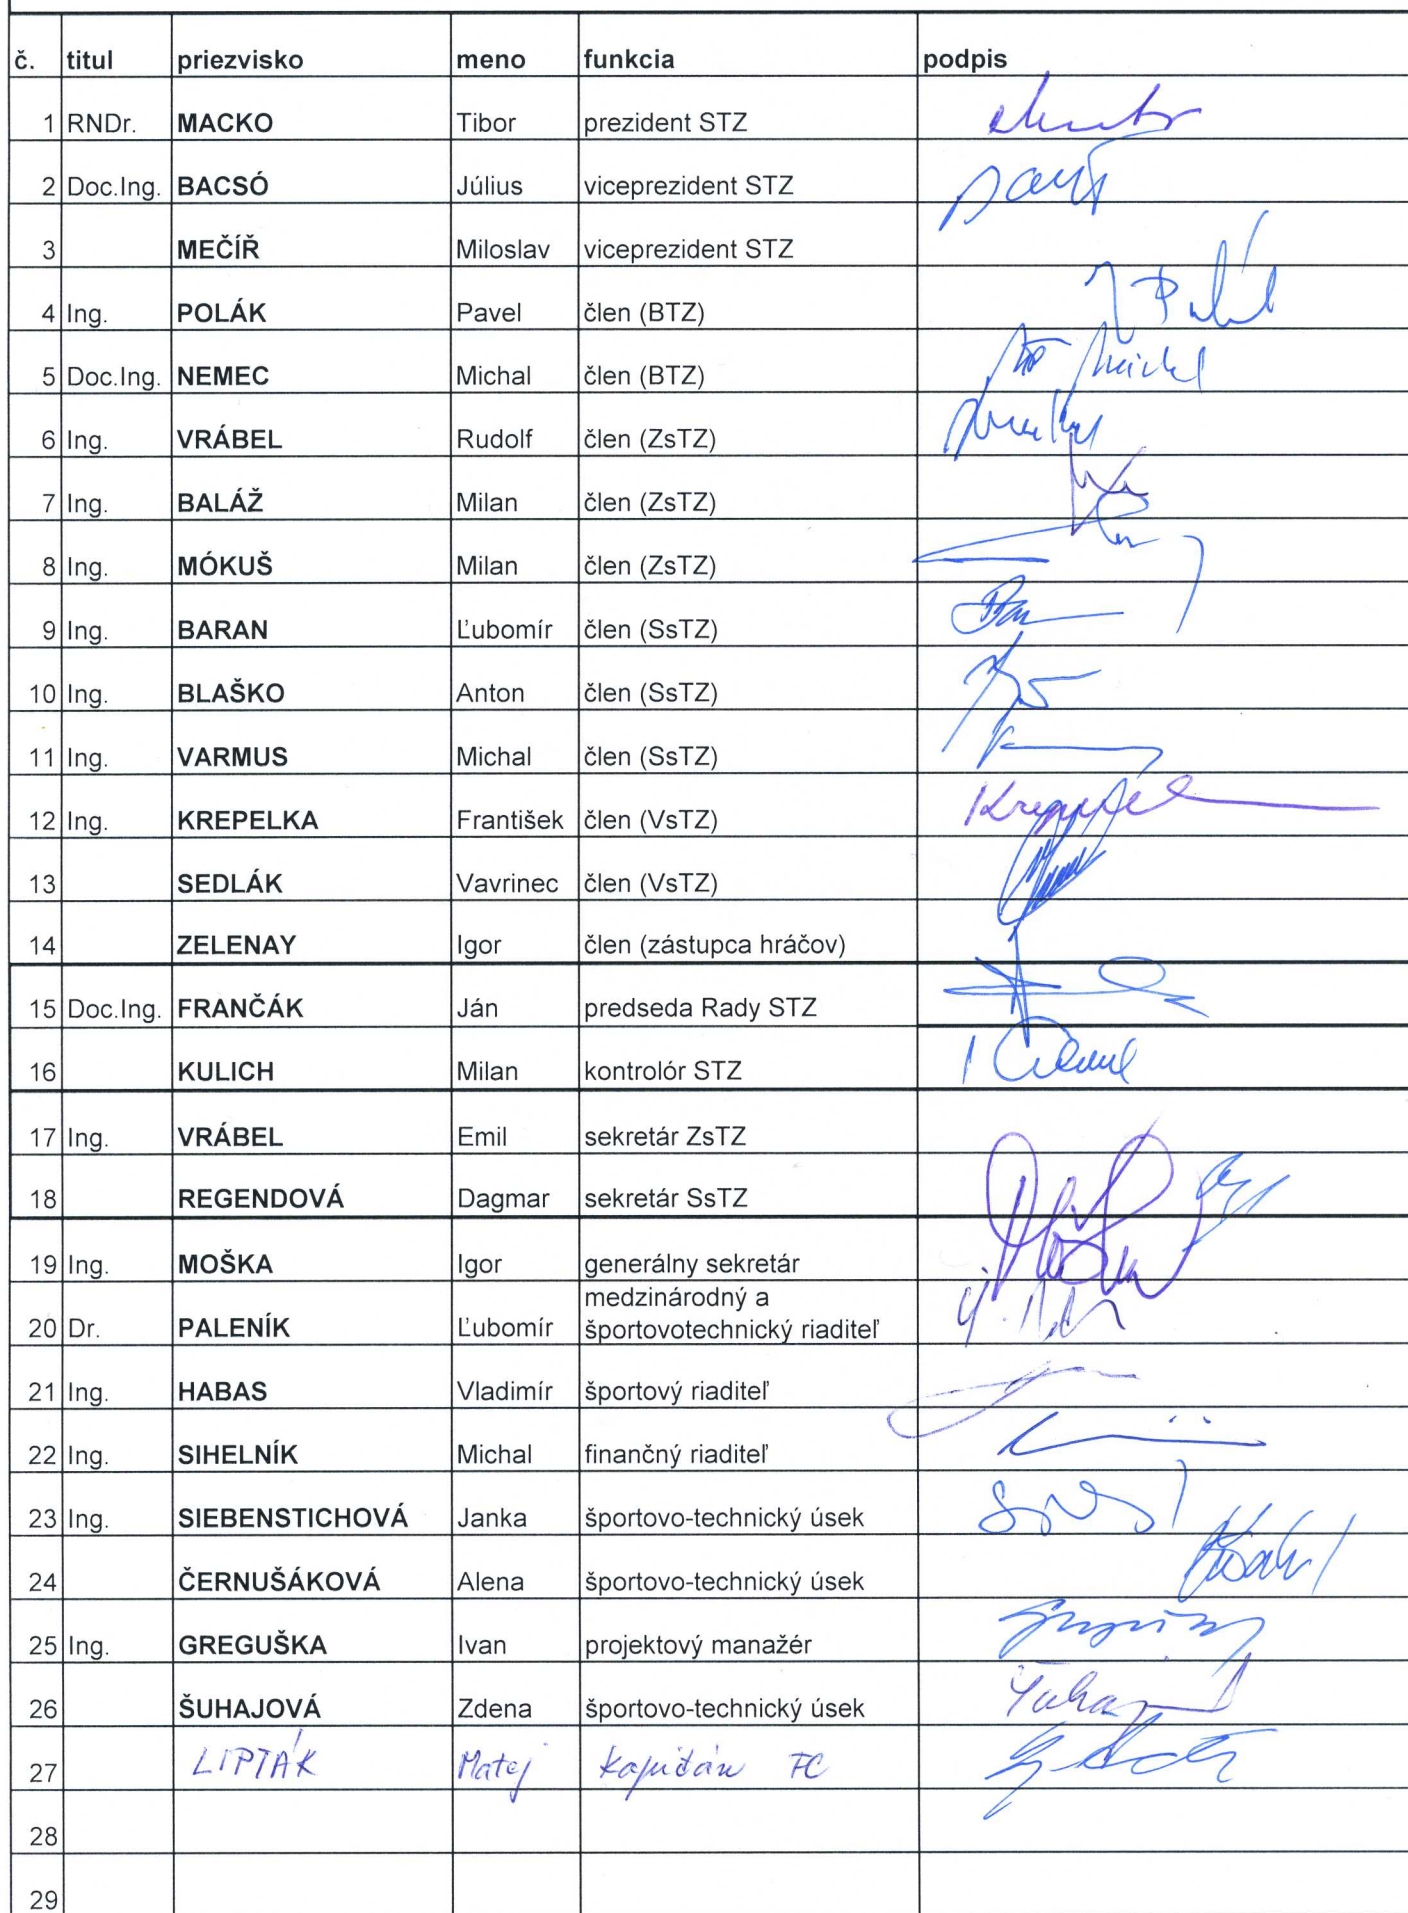 č. titul priezvisko meno funkcia podpis
1 RNDr. MACKO Tibor prezident STZ
2 Doc.Ing. BACSÓ Július viceprezident STZ
3 MEČÍŘ Miloslav viceprezident STZ
4 Ing. POLÁK Pavel člen (BTZ)
5 Doc.Ing. NEMEC Michal člen (BTZ)
6 Ing. VRÁBEL Rudolf člen (ZsTZ)
7 Ing. BALÁŽ Milan člen (ZsTZ)
8 Ing. MÓKUŠ Milan člen (ZsTZ)
9 Ing. BARAN Ľubomír člen (SsTZ)
10 Ing. BLAŠKO Anton člen (SsTZ)
11 Ing. VARMUS Michal člen (SsTZ)
12 Ing. KREPELKA František člen (VsTZ)
13 SEDLÁK Vavrinec člen (VsTZ)
14 ZELENAY Igor člen (zástupca hráčov)
15 Doc.Ing. FRANČÁK Ján predseda Rady STZ
16 KULICH Milan kontrolór STZ
17 Ing. VRÁBEL Emil sekretár ZsTZ
18 REGENDOVÁ Dagmar sekretár SsTZ
19 Ing. MOŠKA Igor generálny sekretár
20 Dr. PALENÍK Ľubomír medzinárodný a
športovotechnický riaditeľ
21 Ing. HABAS Vladimír športový riaditeľ
22 Ing. SIHELNÍK Michal finančný riaditeľ
23 Ing. SIEBENSTICHOVÁ Janka športovo-technický úsek
24 ČERNUŠÁKOVÁ Alena športovo-technický úsek
25 Ing. GREGUŠKA Ivan projektový manažér
26 ŠUHAJOVÁ Zdena športovo-technický úsek
27 LIPTÁK Matej kapitán FC
28
29